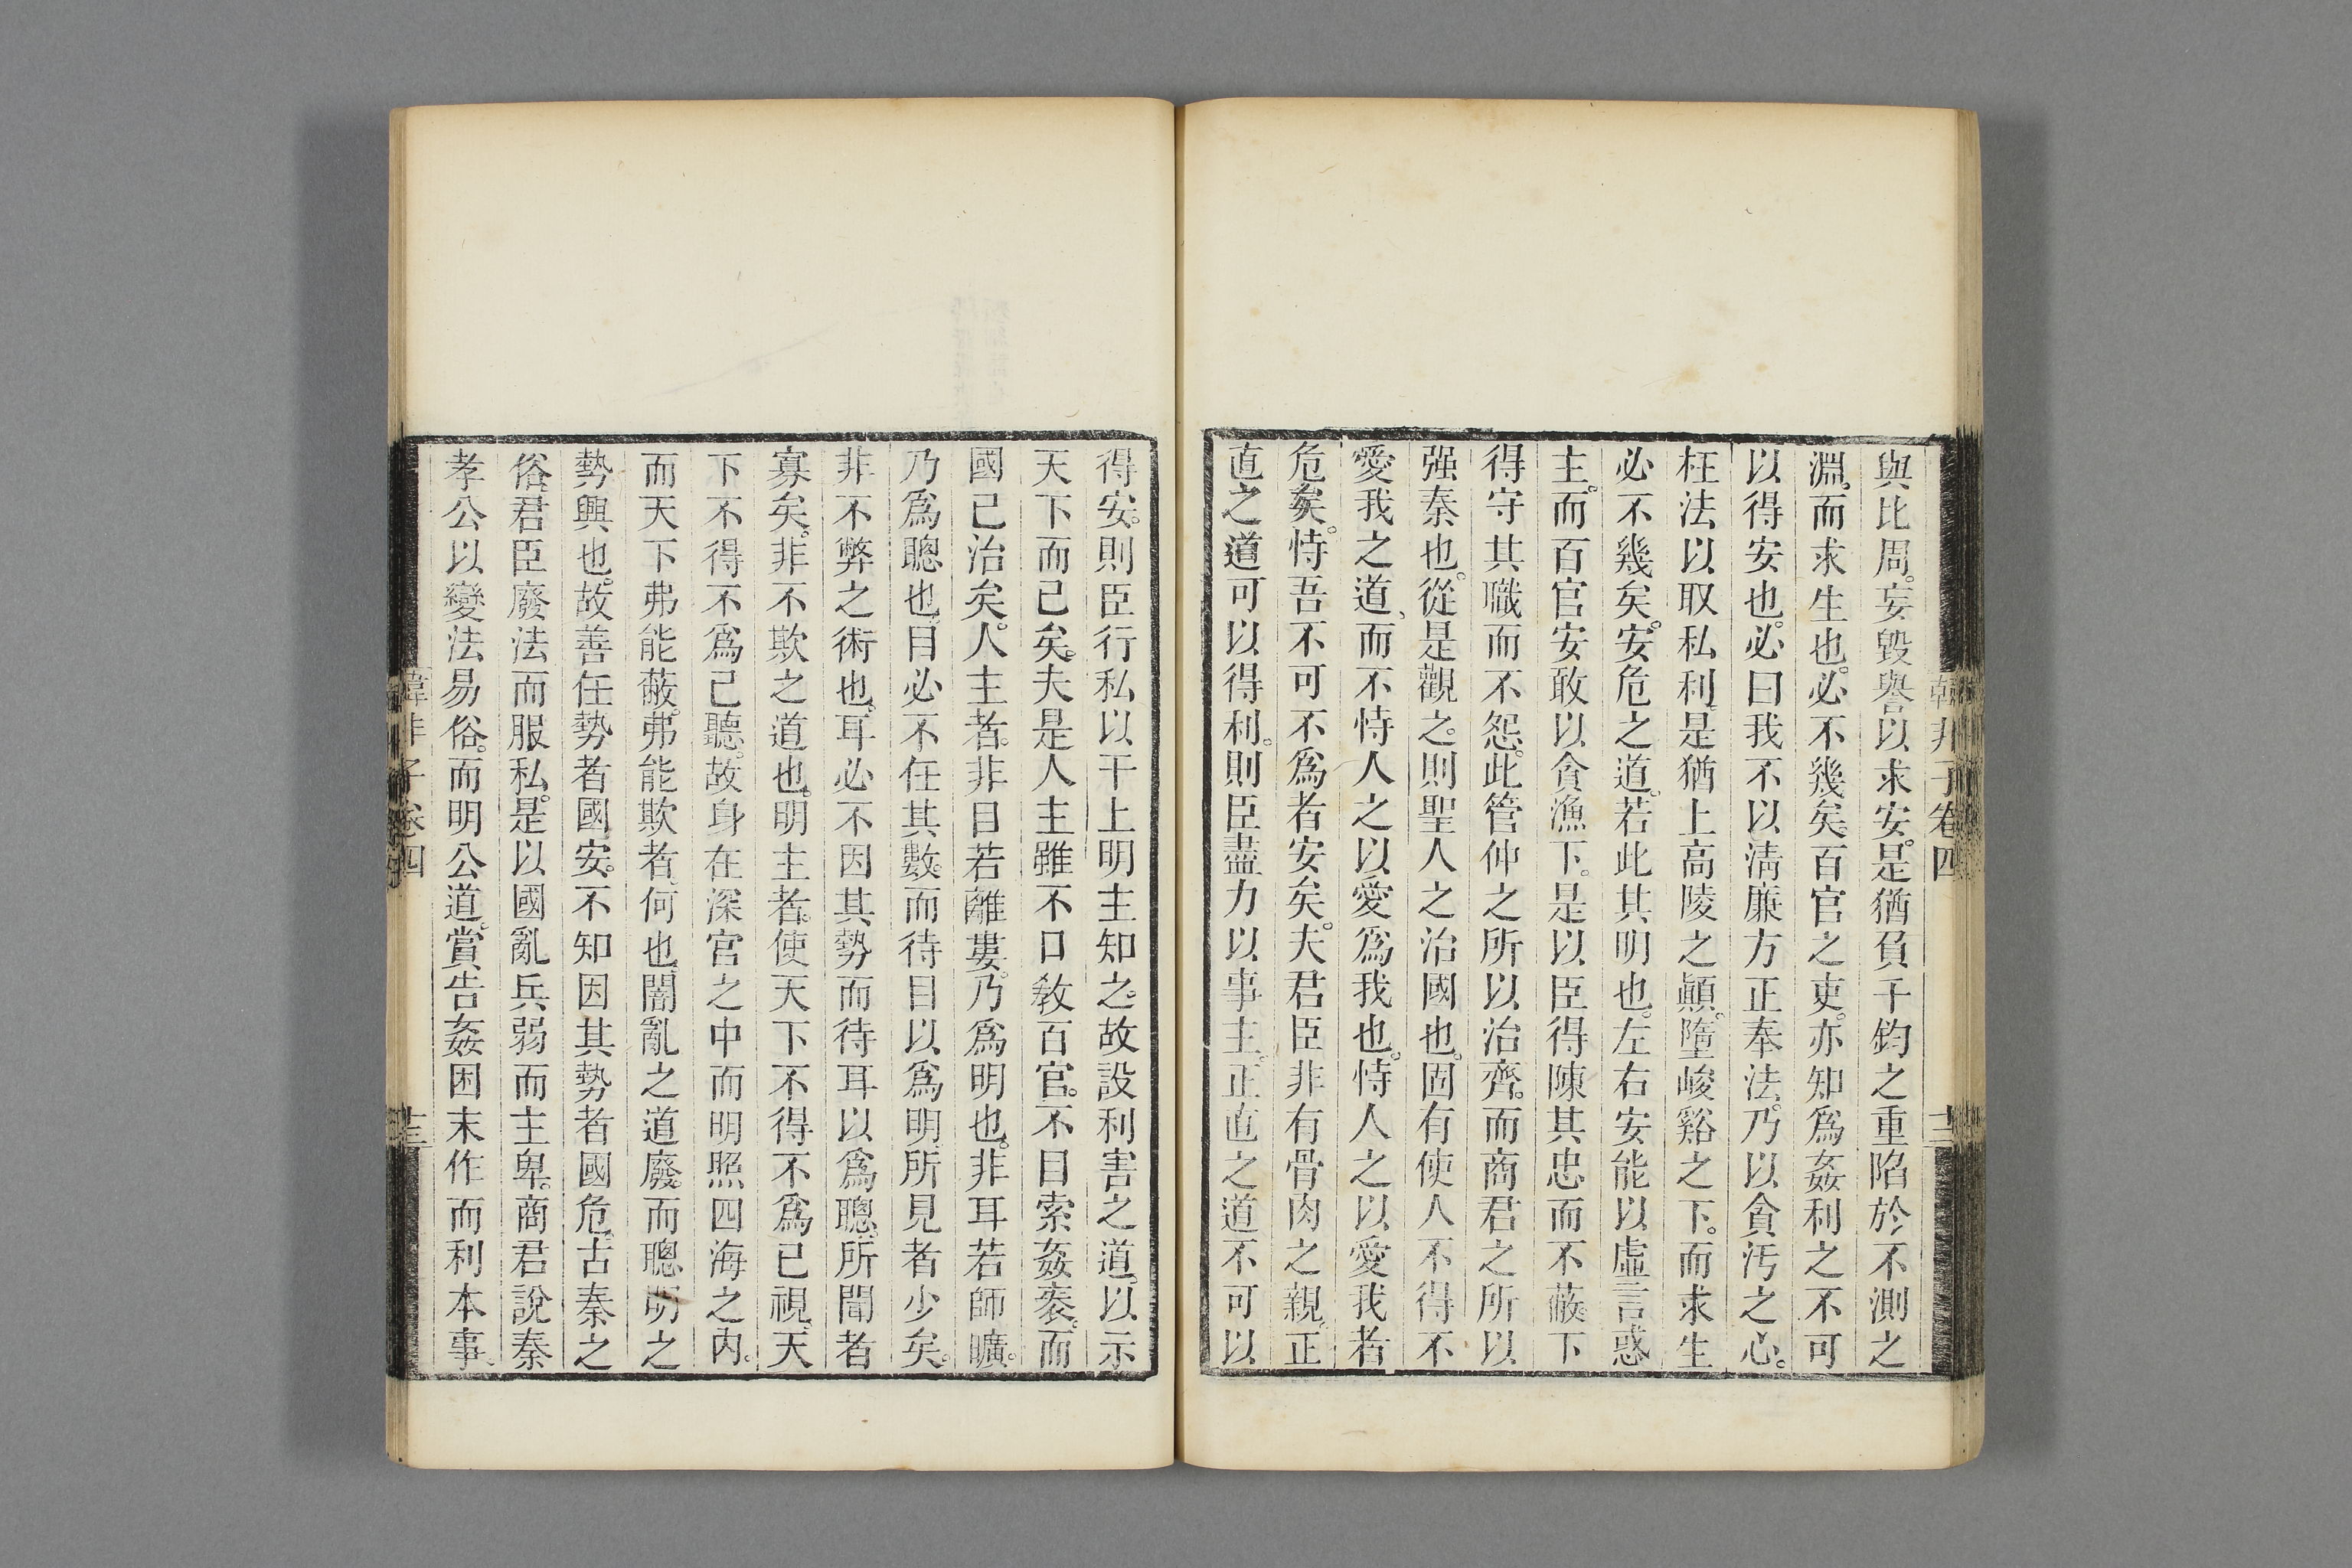 韓非子卷四
十二
與比周。妄毀譽以求安。是猶負千鈞之重陷於不測之
淵。而求生也。必不幾矣。百官之吏。亦知爲姦利之不可
以得安也。必曰我不以淸廉方正奉法。乃以貪汚之心。
枉法以取私利。是猶上高陵之顚。墮峻谿之下。而求生
必不幾矣。安危之道。若此其明也。左右安能以虛言惑
主。而百官安敢以貪漁下。是以臣得陳其忠而不蔽。下
得守其職而不怨。此管仲之所以治齊。而商君之所以
强秦也。從是觀之。則聖人之治國也。固有使人不得不
愛我之道、而不恃人之以愛爲我也。恃人之以愛我者
危矣。恃吾不可不爲者安矣。夫君臣非有骨肉之親。正
直之道可以得利。則臣盡力以事主。正直之道不可以
得安。則臣行私以干上明主知之。故設利害之道。以示
天下而已矣。夫是人主雖不口敎百官。不目索姦衺。而
國已治矣。人主者。非目若離婁。乃爲明也。非耳若師曠。
乃爲聰也。目必不任其數。而待目以爲明。所見者少矣。
非不弊之術也。耳必不因其勢而待耳以爲聰。所聞者
寡矣。非不欺之道也。明主者。使天下不得不爲己視。天
下不得不爲己聽。故身在深宮之中而明照四海之內。
而天下弗能蔽。弗能欺者。何也。闇亂之道廢。而聰明之
勢興也。故善任勢者國安。不知因其勢者國危。古秦之
俗。君臣廢法而服私。是以國亂兵弱而主卑。商君說秦
孝公以變法易俗。而明公道。賞告姦困末作而利本事。
韓非子卷四
十三